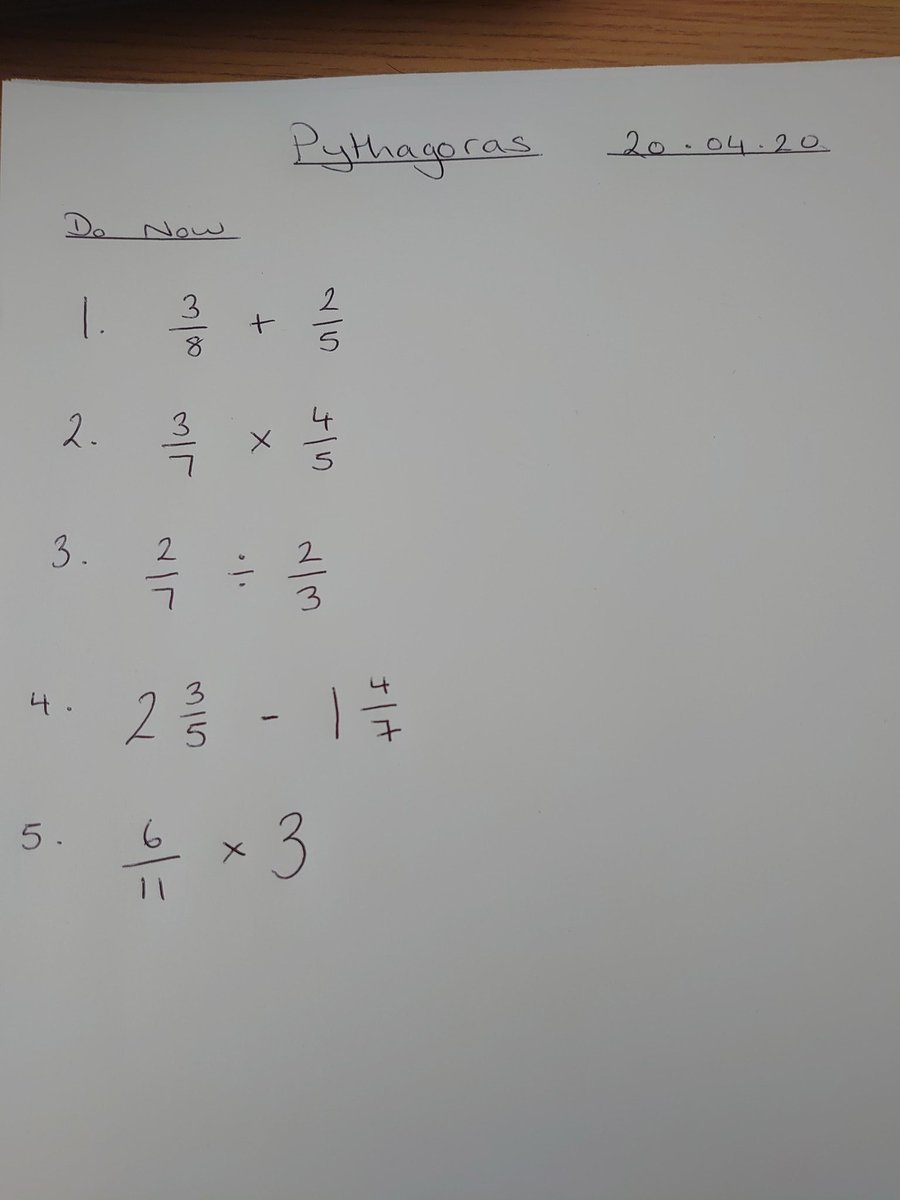 Pythagoras 20.04.20
Do Now
1. 3/8 + 2/5
2. 3/7 × 4/5
3. 2/7 ÷ 2/3
4. 2 3/5 - 1 4/7
5. 6/11 × 3